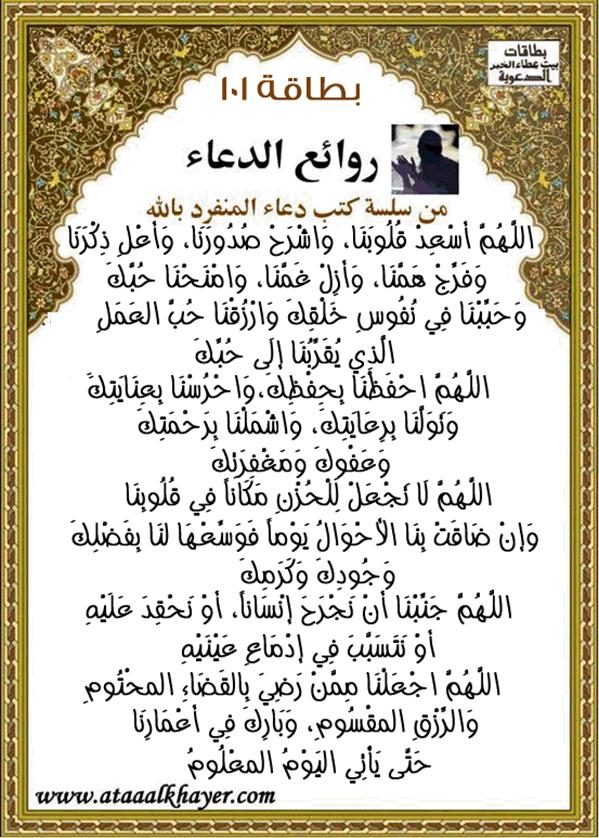 بطاقات
بيت عطاء الخير
الدعوية
بطاقة ١٠١
روائع الدعاء
من سلسة كتب دعاء المنفرد بالله
اللَّهُمَّ أَسْعِدْ قُلُوبَنَا، وَاشْرَحْ صُدُورَنَا، وَأَعْلِ ذِكْرَنَا
وَفَرِّجْ هَمَّنَا، وَأَزِلْ غَمَّنَا، وَامْنَحْنَا حُبَّكَ
وَحَبِّبْنَا فِي نُفُوسِ خَلْقِكَ وَارْزُقْنَا حُبَّ العَمَلِ
الَّذِي يُقَرِّبُنَا إِلَى حُبِّكَ
اللَّهُمَّ احْفَظْنَا بِحِفْظِكَ،وَاحْرُسْنَا بِعِنَايَتِكَ
وَتَوَلَّنَا بِرِعَايَتِكَ، وَاشْمَلْنَا بِرَحْمَتِكَ
وَعَفْوِكَ وَمَغْفِرَتِكَ
اللَّهُمَّ لَا تَجْعَلْ لِلْحُزْنِ مَكَاناً فِي قُلُوبِنَا
وَإِنْ ضَاقَتْ بِنَا الأَحْوَالُ يَوْماً فَوَسِّعْهَا لَنَا بِفَضْلِكَ
وَجُودِكَ وَكَرَمِكَ
اللَّهُمَّ جَنِّبْنَا أَنْ نَجْرَحَ إِنْسَاناً، أَوْ نَحْقِدَ عَلَيْهِ
أَوْ نَتَسَبَّبَ فِي إِدْمَاعِ عَيْنَيْهِ
اللَّهُمَّ اجْعَلْنَا مِمَّنْ رَضِيَ بِالقَضَاءِ المحْتُومِ
وَالرِّزْقِ المقْسُومِ، وَبَارِكْ فِي أَعْمَارِنَا
حَتَّى يَأْتِي اليَوْمُ المعْلُومُ
www.ataaalkhayer.com